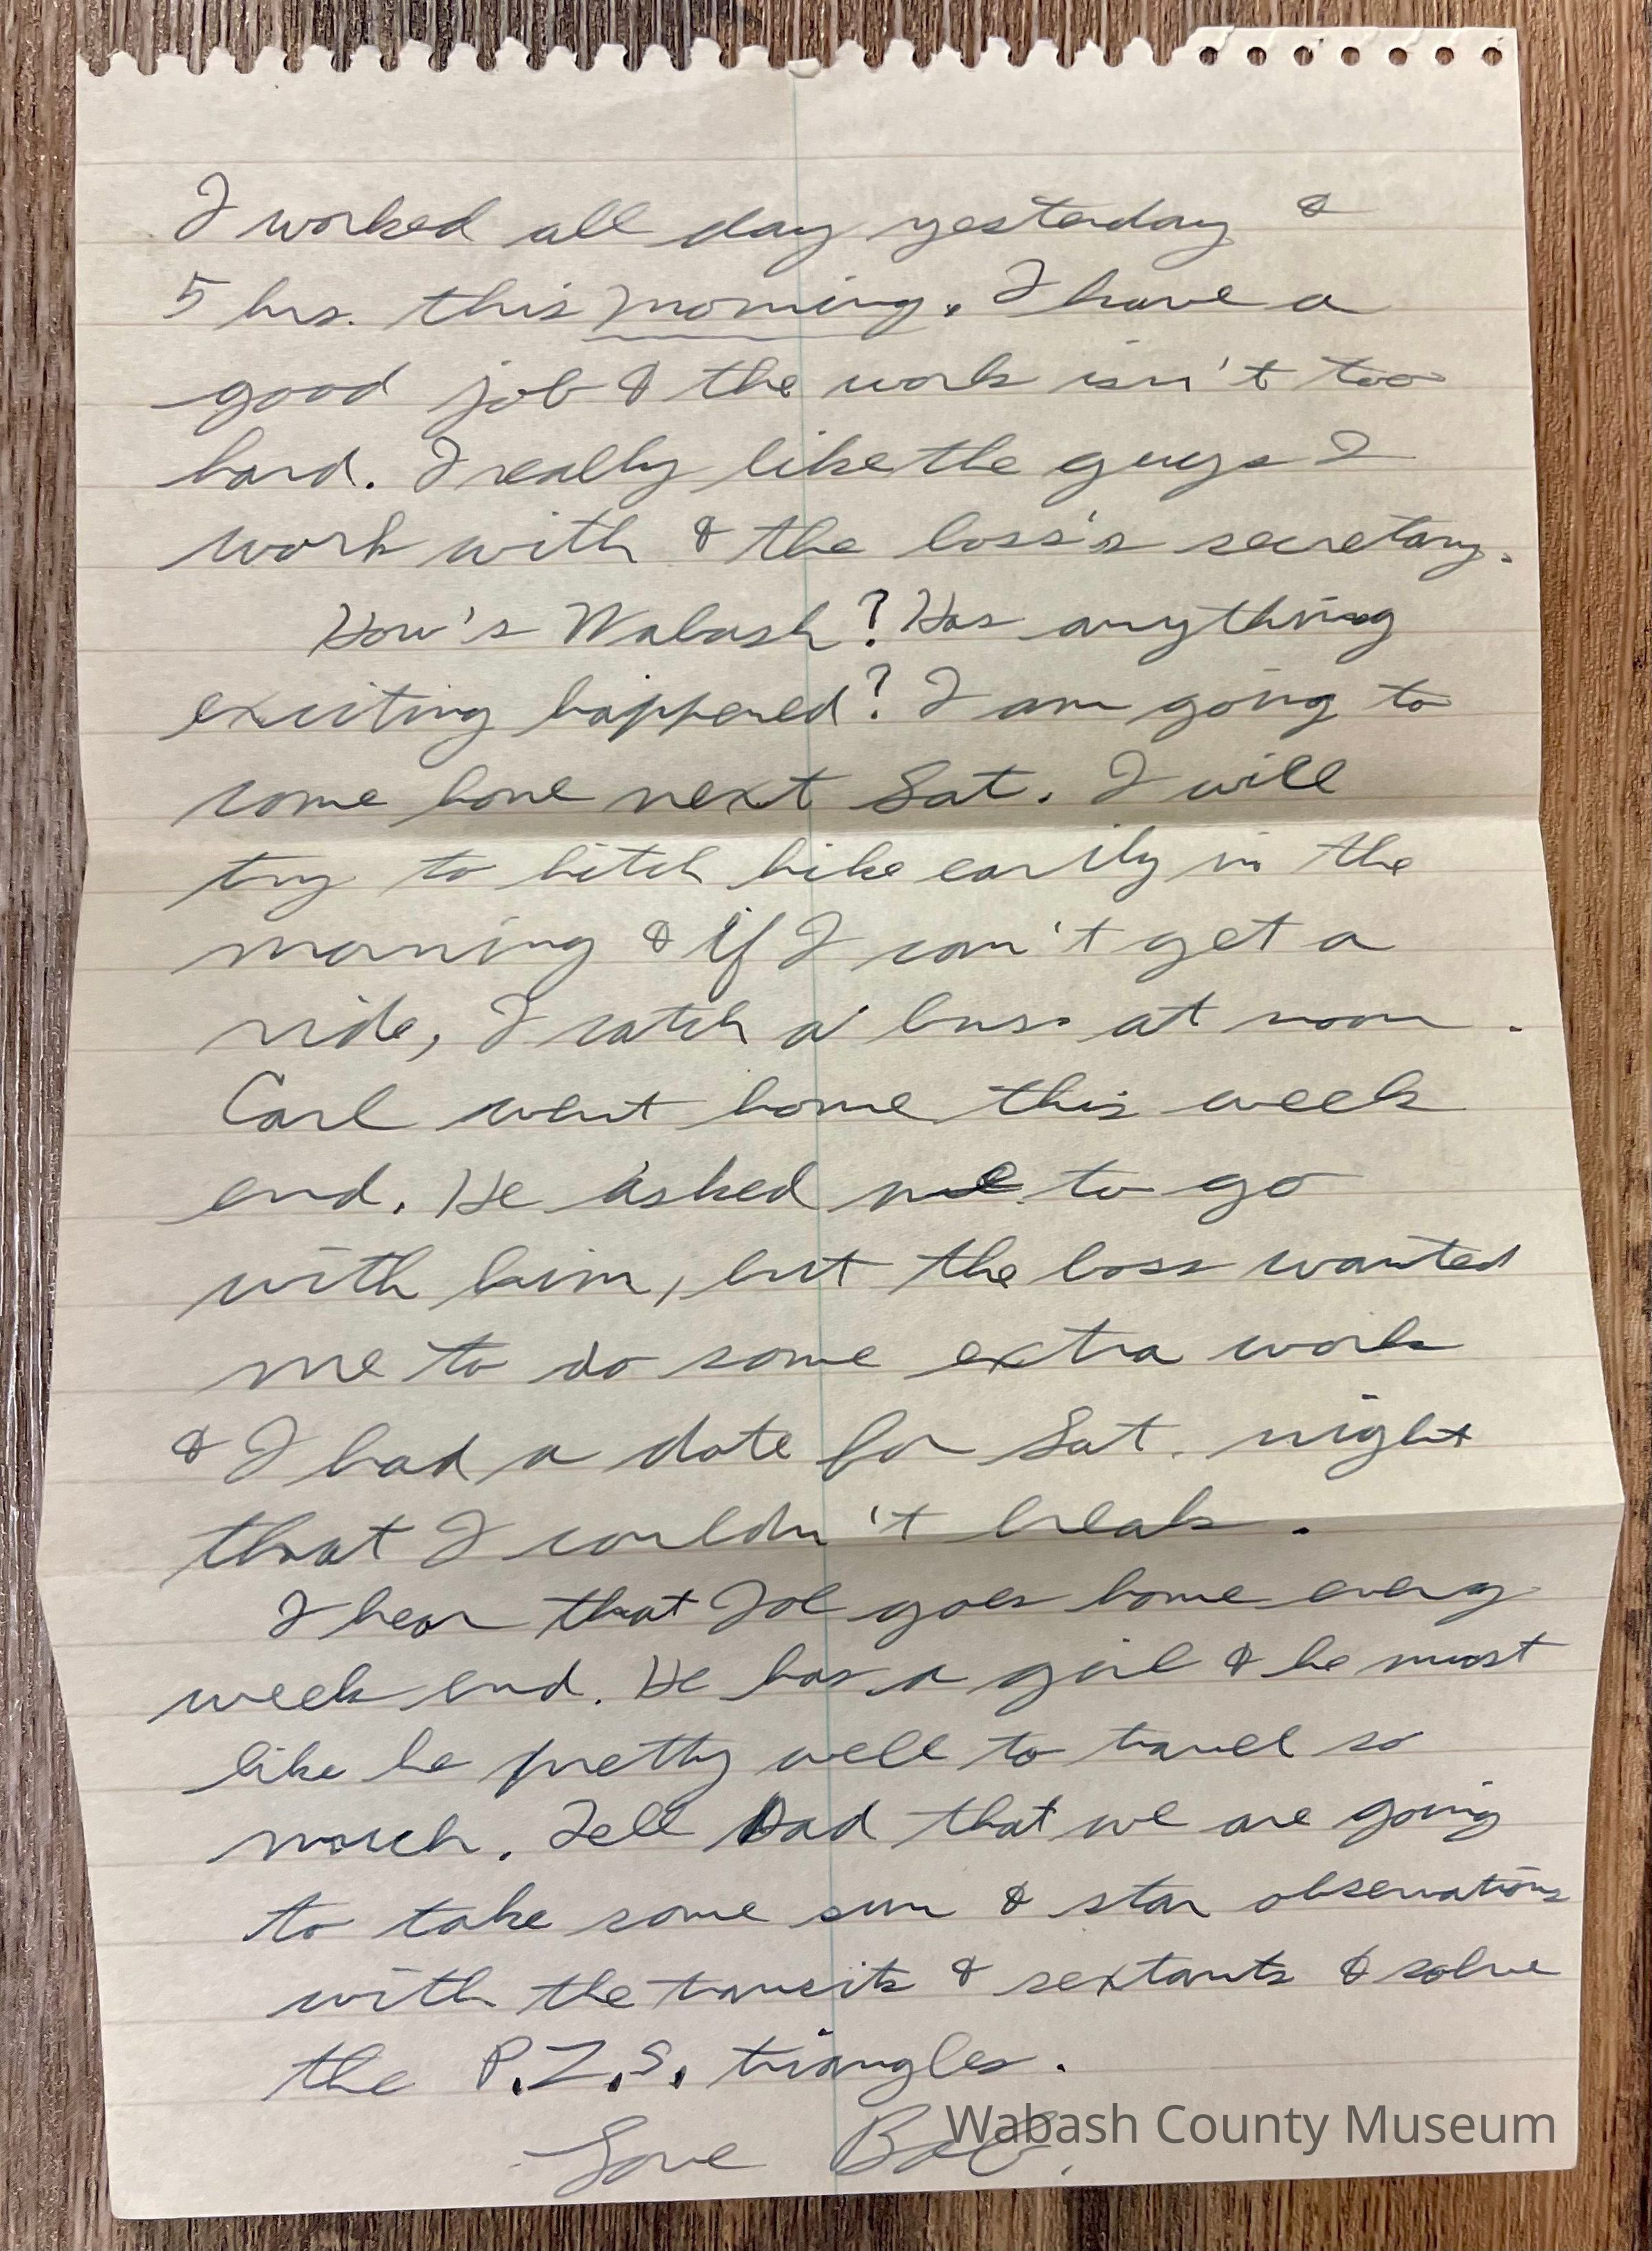 I worked all day yesterday &
5 hrs. this morning. I have a
good job & the work isn't too
hard. I really like the guys I
work with & the boss's secretary.
How's Wabash? Has anything
exciting happened? I am going to
come home next Sat. I will
try to hitch hike earily in the
morning & if I can't get a
ride, I catch a bus at noon.
Carl went home this week
end. He asked me to go
with him, but the boss wanted
me to do some extra work
& I had a date for Sat. night
that I couldn't break.
I hear that goes home every
week end. He has a girl & he must
like he pretty well to travel so
much. Tell Dad that we are going
to take some sun & star observations
with the transits & sextants & solve
the P.Z.S. triangles.
Love Bob.
Wabash County Museum